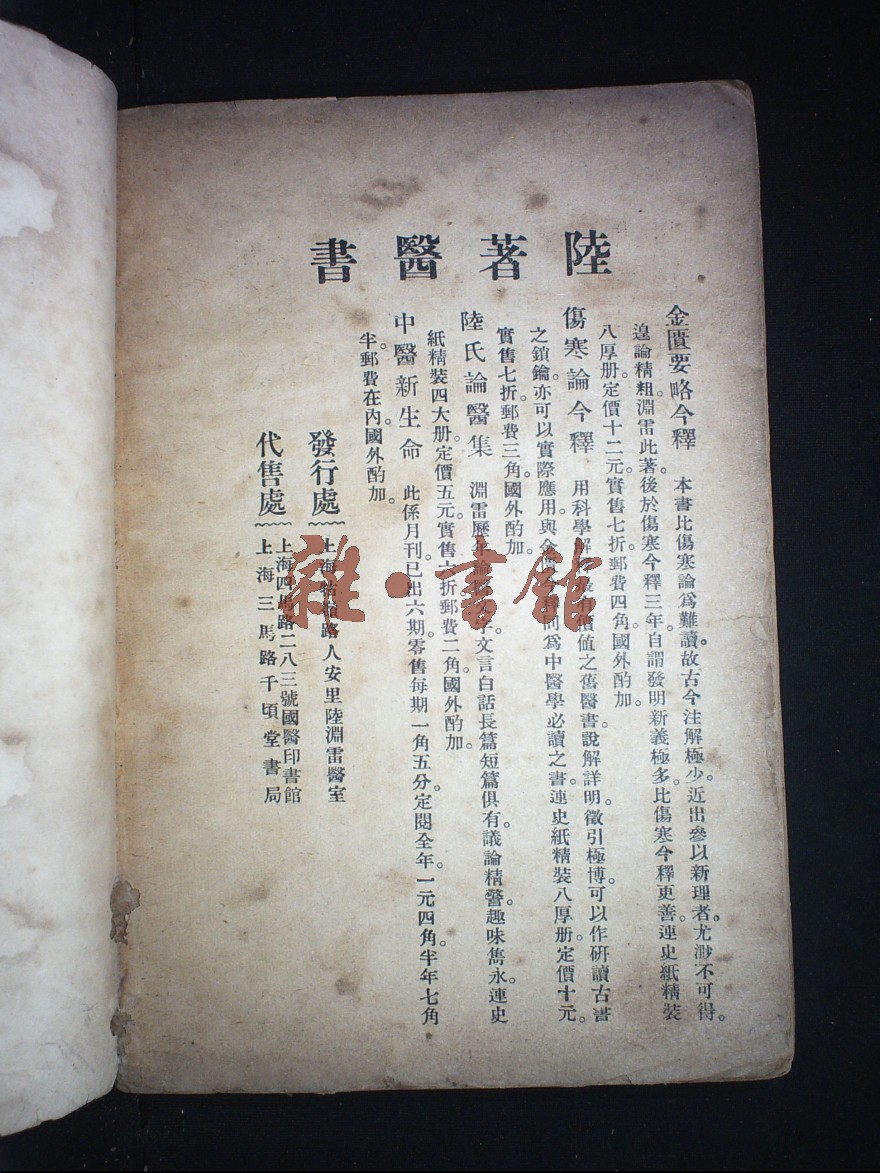 陸著醫書
金匱要略今釋 本書比傷寒論爲難讀。故古今注解極少。近出參以新理者。尤渺不可得。
遑論精粗。淵雷此著。後於傷寒今釋三年。自謂發明新義極多。比傷寒今釋更善。連史紙精裝
八厚册。定價十二元。實售七折。郵費四角。國外酌加。
傷寒論今釋 用科學解釋最有價值之舊醫書。說解詳明。徵引極博。可以作研讀古書
之鎖鑰。亦可以實際應用。與金匱今釋同爲中醫學必讀之書。連史紙精裝八厚册。定價十元。
實售七折。郵費三角。國外酌加。
陸氏論醫集 淵雷歷年論醫文字。文言白話長篇短篇俱有。議論精警。趣味雋永。連史
紙精裝四大册。定價五元。實售七折。郵費二角。國外酌加。
中醫新生命 此係月刊。已出六期。零售每期一角五分。定閱全年一元四角。半年七角
半。郵費在內。國外酌加。
發行處 上海牯嶺路人安里陸淵雷醫室
代售處 上海四馬路二八三號國醫印書館
上海三馬路千頃堂書局
雜·書館